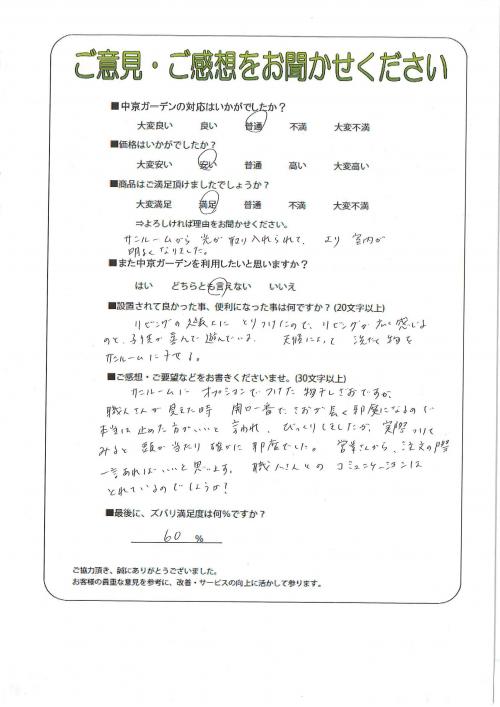 ご意見・ご感想をお聞かせください
■中京ガーデンの対応はいかがでしたか？
大変良い 良い 普通 不満 大変不満
■価格はいかがでしたか？
大変安い 安い 普通 高い 大変高い
■商品はご満足頂けましたでしょうか？
大変満足 満足 普通 不満 大変不満
⇒よろしければ理由をお聞かせください。
サンルームから 光が取り入れられて、より 室内が
明るくなりました。
■また中京ガーデンを利用したいと思いますか？
はい どちらとも言えない いいえ
■設置されて良かった事、便利になった事は何ですか？(20文字以上)
リビングの にとりつけたので、リビングが 広く感じる
のと、子供が喜んで遊んでいる。 天候によって 洗たく物を
サンルームに干せる。
■ご感想・ご要望などをお書きくださいませ。(30文字以上)
サンルームに オプションでつけた 物干しざおですが、
職人さんが見えた時 開口一番で、さおが長く邪魔になるので
本当は止めた方がいいと 言われ、びっくりしましたが、実際つけて
みると 頭が当たり 確かに 邪魔でした。 営業さんから、注文の際
一言あればいいと思います。 職人さんとの コミュニケーションは
とれているのでしょうか!
■最後に、ズバリ満足度は何％ですか？
60 ％
ご協力頂き、誠にありがとうございました。
お客様の貴重な意見を参考に、改善・サービスの向上に活かして参ります。